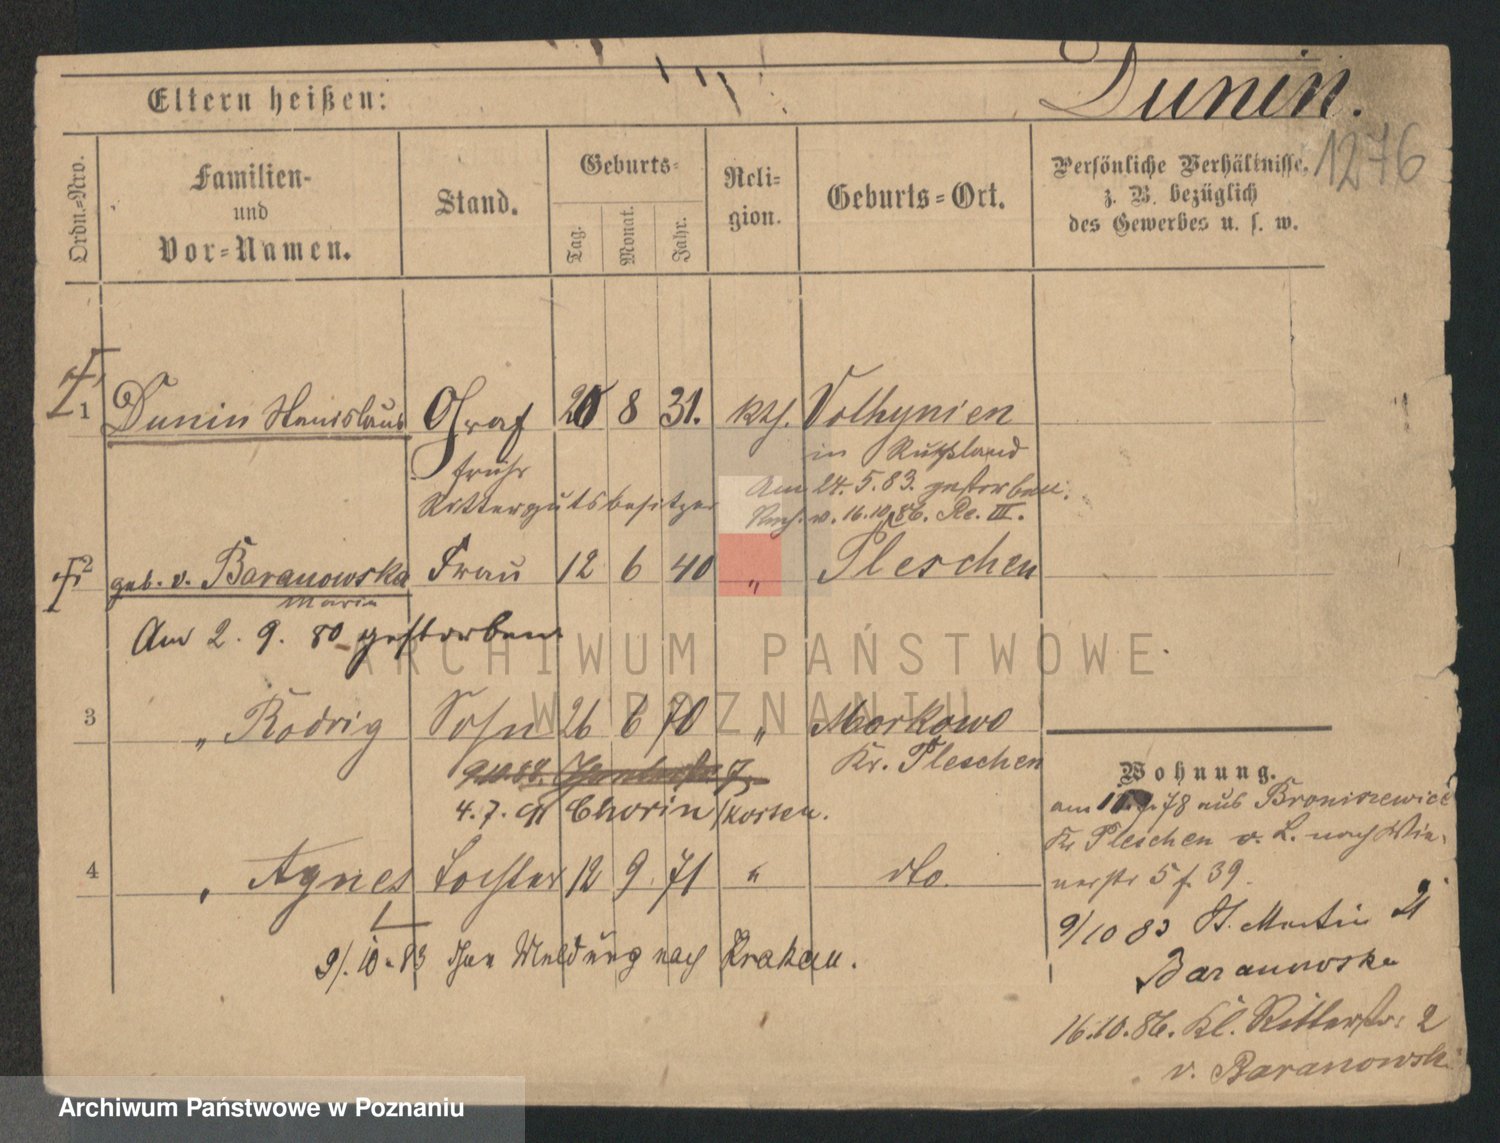 Dunin.
Eltern heißen:
1276
Ordn.-Nro.
Familien-
und
Vor-Namen.
Stand.
Geburts-
Tag.
Monat.
Jahr.
Reli-
gion.
Geburts-Ort.
Persönliche Verhältnisse,
z. B. bezüglich
des Gewerbes u. s. w.
1 Dunin Stanislaus Graf 8 31. kth. Volhynien
früher in Rußland
Rittergutsbesitzer Am 24.5.83. gestorben.
v. 16.10.86. Re. III.
2 geb. v. Baranowska Frau 12 6 40 " Pleschen
Maria
Am 2. 9. 80 gestorben
3 " Rodrig Sohn 26 6 70 " Morkowo
Kr. Pleschen
4.7.91 Chorin / Kosten.
4 " Agnes Tochter 12 9 71 " dto.
9/.10.83 Meldung nach Krakau.
Wohnung.
am 78 aus Broniszewice
Kr Pleschen v. L. nach Wie-
nerstr 5 f. 39.
9/10 83 St. Martin 21
Baranowska
16.10.86. Kl. Ritterstr. 2
v. Baranowski
ARCHIWUM PAŃSTWOWE
W POZNANIU
Archiwum Państwowe w Poznaniu